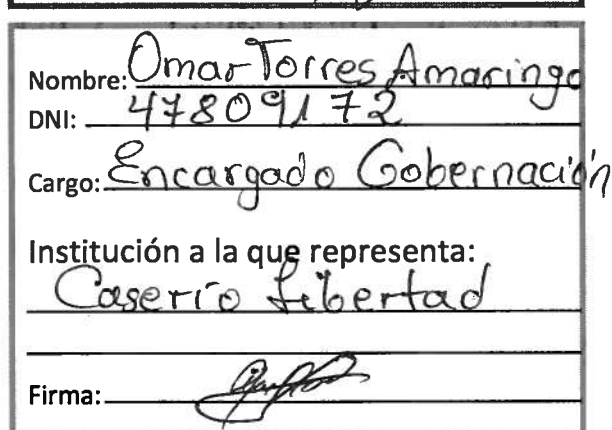 Nombre: Omar Torres Amaringo
DNI: 47809172
Cargo: Encargado Gobernación
Institución a la que representa:
Caserío Libertad
Firma: